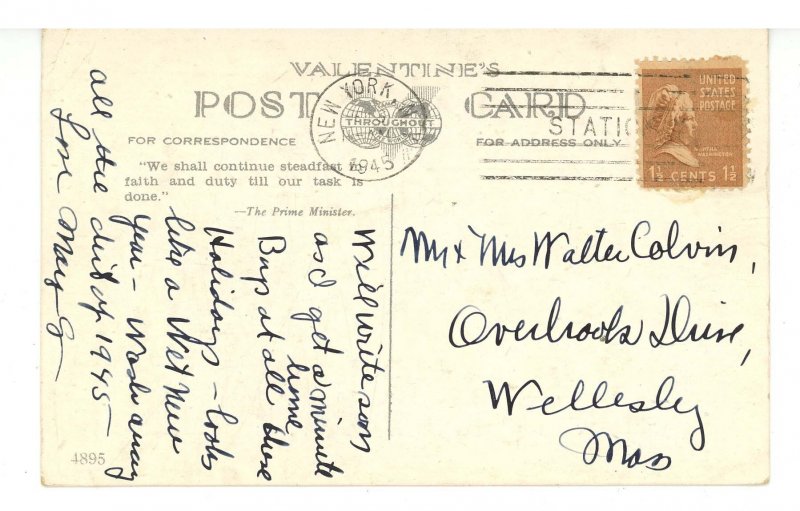 VALENTINE'S
POST CARD
FOR CORRESPONDENCE
FOR ADDRESS ONLY
"We shall continue steadfast in
faith and duty till our task is
done."
—The Prime Minister.
NEW YORK, N.Y.
THROUGHOUT
1945
STATIO
UNITED
STATES
POSTAGE
MARTHA
WASHINGTON
1½ CENTS 1½
Will write soon
as I get a minute
home
Busy at all these
Holidays – looks
like a Wet New
Year – Wash away
all the dirt of 1945 –
Love Mary G
Mr & Mrs Walter Colvin,
Overbrook Drive,
Wellesley
Mass
4895